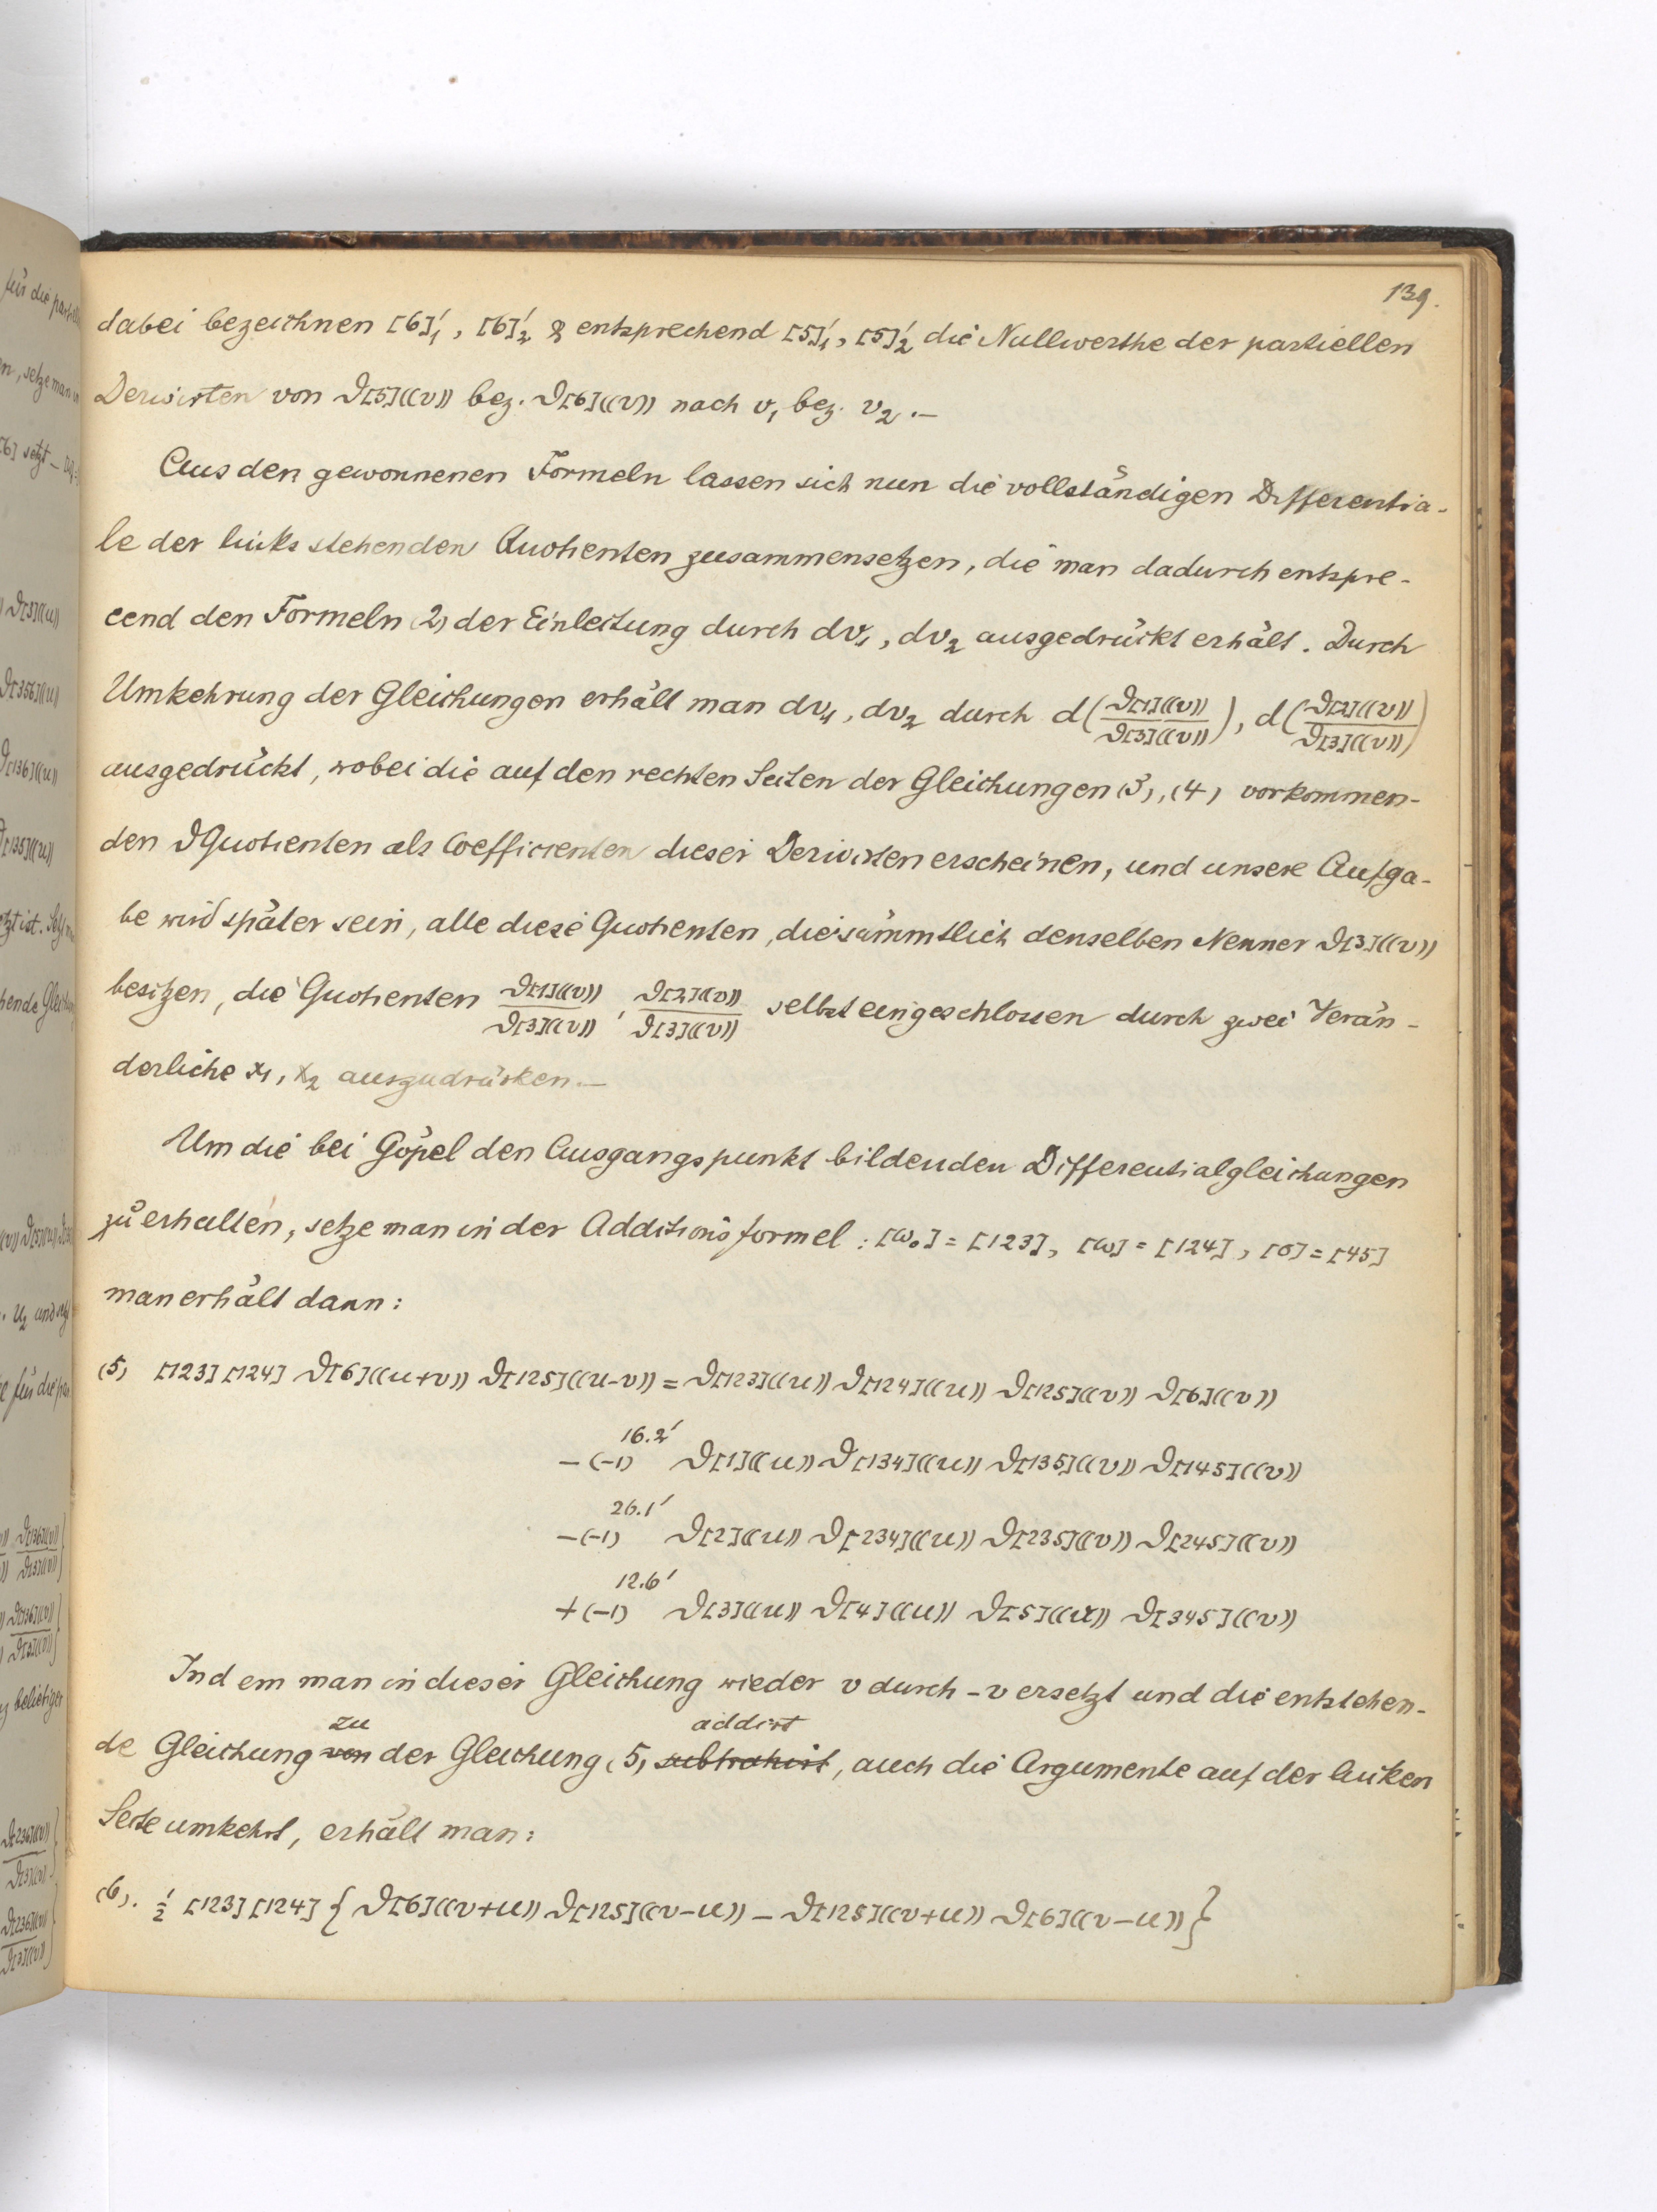 139.
dabei bezeichnen [6]'₁, [6]'₂ & entsprechend [5]'₁, [5]'₂ die Nullwerthe der partiellen
Derivirten von ϑ[5]((v)) bez. ϑ[6]((v)) nach v₁ bez. v₂.—
Aus den gewonnenen Formeln lassen sich nun die vollständigen Differentia-
le der links stehenden Quotienten zusammensetzen, die man dadurch entspre-
cend den Formeln (2) der Einleitung durch dv₁, dv₂ ausgedrückt erhält. Durch
Umkehrung der Gleichungen erhält man dv₁, dv₂ durch d(ϑ[1]((v))/ϑ[3]((v))), d(ϑ[2]((v))/ϑ[3]((v)))
ausgedrückt, wobei die auf den rechten Seiten der Gleichungen (3), (4) vorkommen-
den ϑQuotienten als Coefficienten dieser Derivirten erscheinen, und unsere Aufga-
be wird später sein, alle diese Quotienten, die sämmtlich denselben Nenner ϑ[3]((v))
besitzen, die Quotienten ϑ[1]((v))/ϑ[3]((v)), ϑ[2]((v))/ϑ[3]((v)) selbst eingeschlossen durch zwei Verän-
derliche x₁, x₂ auszudrücken.—
Um die bei Göpel den Ausgangspunkt bildenden Differentialgleichungen
zu erhalten, setze man in der Additionsformel: [ω₀] = [123], [ω] = [124], [σ] = [45]
man erhält dann:
(5) [123] [124] ϑ[6]((u+v)) ϑ[125]((u-v)) = ϑ[123]((u)) ϑ[124]((u)) ϑ[125]((v)) ϑ[6]((v))
- (-1)^{16.2'} ϑ[1]((u)) ϑ[134]((u)) ϑ[135]((v)) ϑ[145]((v))
- (-1)^{26.1'} ϑ[2]((u)) ϑ[234]((u)) ϑ[235]((v)) ϑ[245]((v))
+ (-1)^{12.6'} ϑ[3]((u)) ϑ[4]((u)) ϑ[5]((v)) ϑ[345]((v))
Indem man in dieser Gleichung wieder v durch -v ersetzt und die entstehen-
zu addirt
de Gleichung von der Gleichung (5) subtrahirt, auch die Argumente auf der linken
Seite umkehrt, erhält man:
(6). ½ [123] [124] { ϑ[6]((v+u)) ϑ[125]((v-u)) - ϑ[125]((v+u)) ϑ[6]((v-u)) }